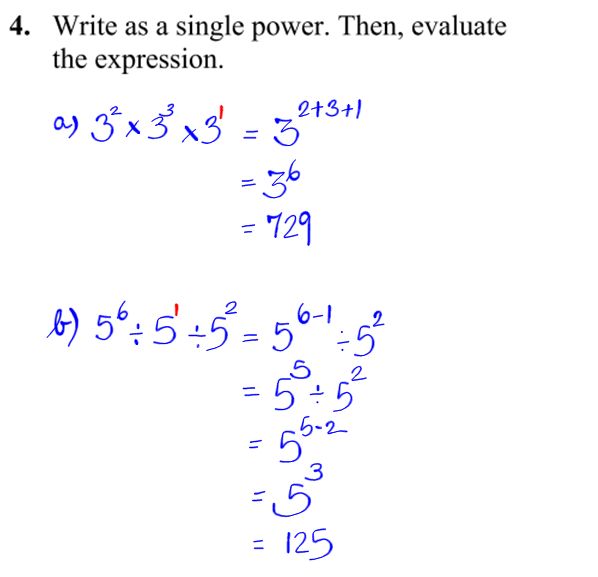 4. Write as a single power. Then, evaluate
the expression.
a) 3² × 3³ × 3¹ = 3²⁺³⁺¹
= 3⁶
= 729
b) 5⁶ ÷ 5¹ ÷ 5² = 5⁶⁻¹ ÷ 5²
= 5⁵ ÷ 5²
= 5⁵⁻²
= 5³
= 125